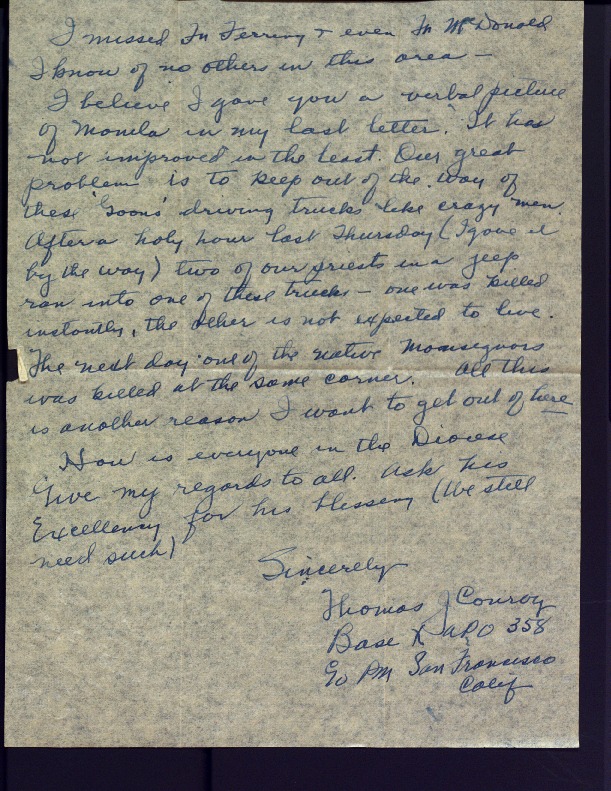 I missed Fr Ferring & even Fr McDonald
I know of no others in this area -
I believe I gave you a verbal picture
of Manila in my last letter. It has
not improved in the least. Our great
problem is to keep out of the way of
these 'Goons' driving trucks like crazy men.
After a holy hour last Thursday (I gave it
by the way) two of our priests in a jeep
ran into one of these trucks - one was killed
instantly, the other is not expected to live.
The next day one of the native Monsignors
was killed at the same corner. All this
is another reason I want to get out of here
How is everyone in the Diocese
Give my regards to all. Ask his
Excellency for his blessing (We still
need such)
Sincerely
Thomas J Conroy
Base X APO 358
c/o PM San Francisco
Calif